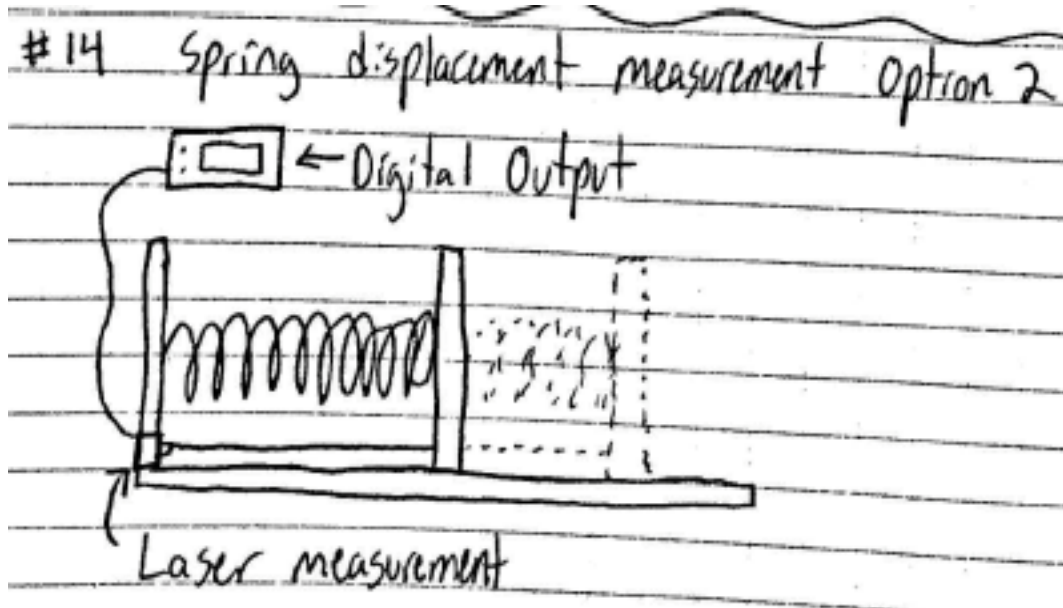 #14 Spring displacement measurement Option 2
← Digital Output
Laser measurement